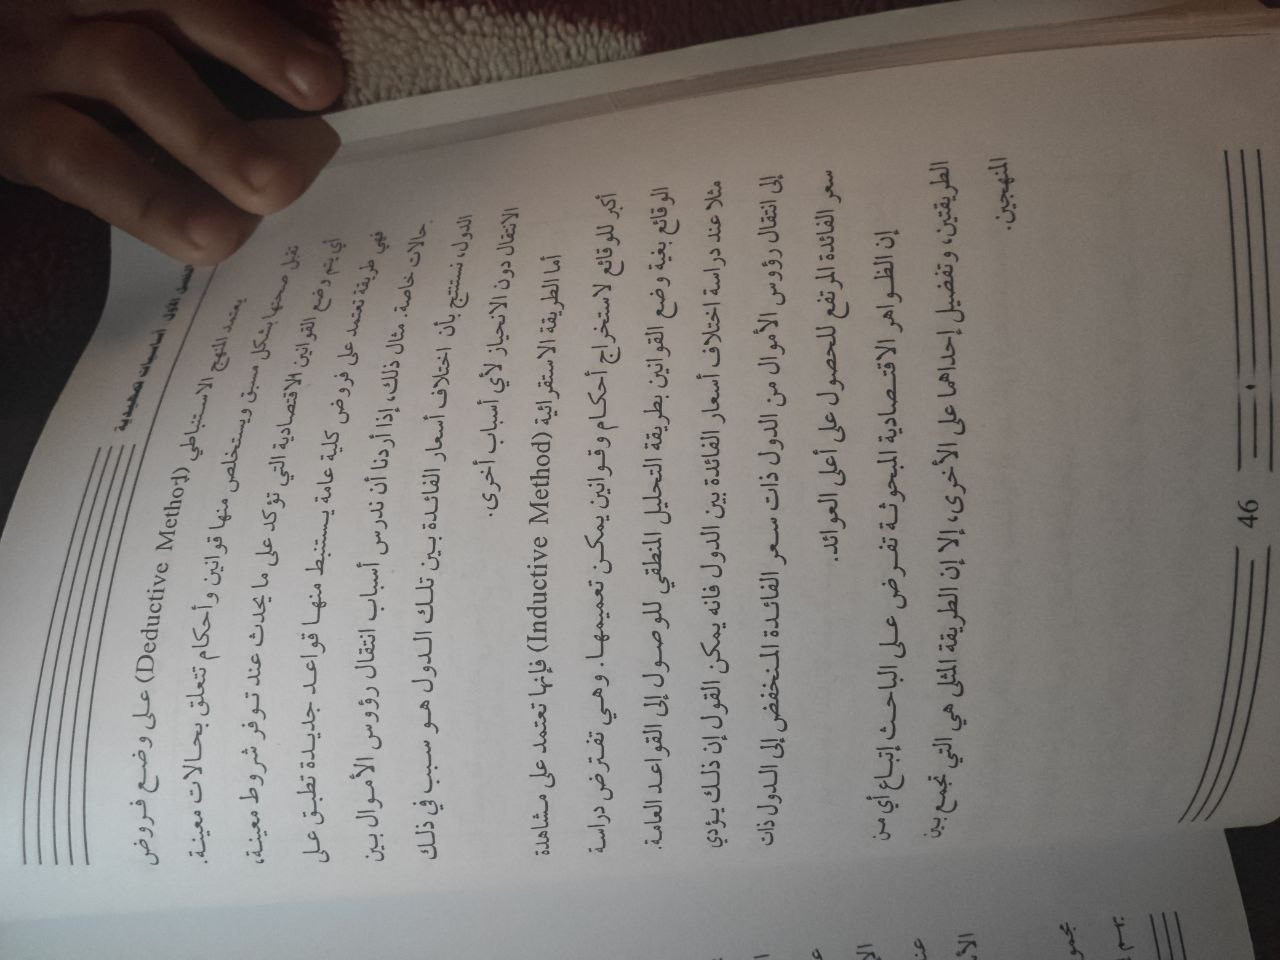 الفصل الأول أساسيات تمهيدية
يعتمد المنهج الاستنباطي (Deductive Method) على وضع فروض
تقبل صحتها بشكل مسبق ويستخلص منها قوانين وأحكام تتعلق بحالات معينة.
أي يتم وضع القوانين الاقتصادية التي تؤكد على ما يحدث عند توفر شروط معينة،
فهي طريقة تعتمد على فروض كلية عامة يستنبط منها قواعد جديدة تطبق على
حالات خاصة. مثال ذلك، إذا أردنا أن ندرس أسباب انتقال رؤوس الأموال بين
الدول، نستنتج بأن اختلاف أسعار الفائدة بين تلك الدول هو سبب في ذلك
الانتقال دون الانحياز لأي أسباب أخرى.
أما الطريقة الاستقرائية (Inductive Method) فإنها تعتمد على مشاهدة
أكبر للوقائع لاستخراج أحكام وقوانين يمكن تعميمها. وهي تفترض دراسة
الوقائع بغية وضع القوانين بطريقة التحليل المنطقي للوصول إلى القواعد العامة.
مثلا عند دراسة اختلاف أسعار الفائدة بين الدول فانه يمكن القول إن ذلك يؤدي
إلى انتقال رؤوس الأموال من الدول ذات سعر الفائدة المنخفض إلى الدول ذات
سعر الفائدة المرتفع للحصول على أعلى العوائد.
إن الظواهر الاقتصادية المبحوثة تفرض على الباحث إتباع أي من
الطريقتين، وتفضيل إحداهما على الأخرى، إلا إن الطريقة المثلى هي التي تجمع بين
المنهجين.
46